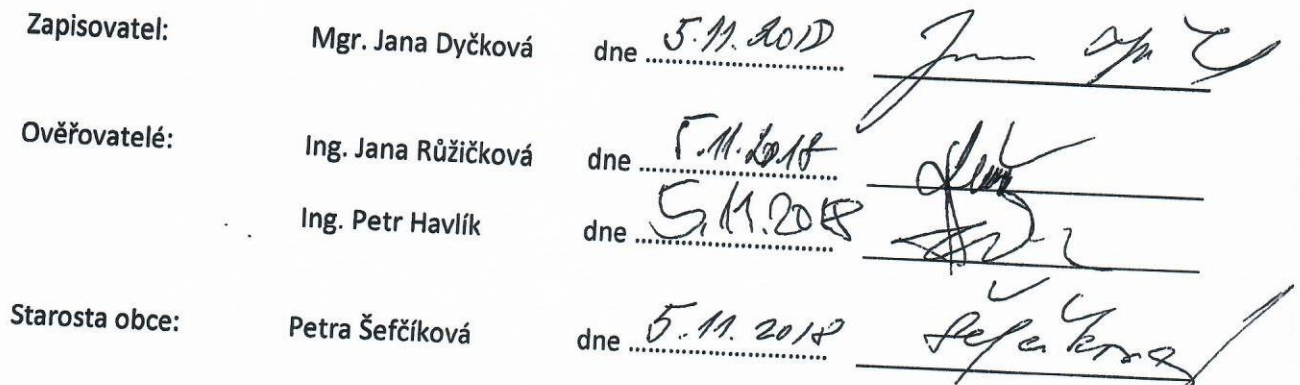 Zapisovatel: Mgr. Jana Dyčková dne 5.11.2018
Ověřovatelé: Ing. Jana Růžičková dne 5.11.2018
Ing. Petr Havlík dne 5.11.2018
Starosta obce: Petra Šefčíková dne 5.11.2018